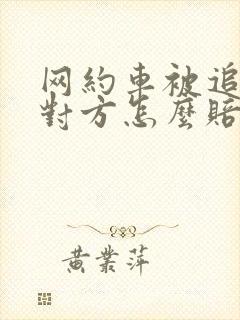 网約車被追
對方怎麽賠
黄業萍